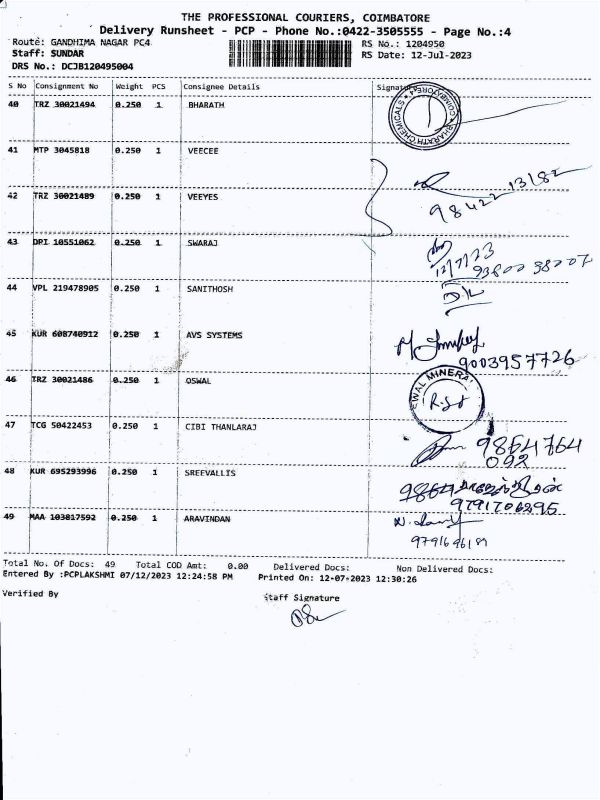 THE PROFESSIONAL COURIERS, COIMBATORE
Delivery Runsheet - PCP - Phone No.:0422-3505555 - Page No.:4
Route: GANDHIMA NAGAR PC4
RS No.: 1204950
Staff: SUNDAR
RS Date: 12-Jul-2023
DRS No.: DCJB120495004
S No Consignment No Weight PCS Consignee Details Signature
40 TRZ 30021494 0.250 1 BHARATH
BHARATH CHEMICALS COIMBATORE
41 MTP 3045818 0.250 1 VEECEE
42 TRZ 30021489 0.250 1 VEEYES
98422 13182
43 DPI 10551062 0.250 1 SWARAJ
12/7/23
93800 38207
44 VPL 219478905 0.250 1 SANITHOSH
45 KUR 608740912 0.250 1 AVS SYSTEMS
9003957726
46 TRZ 30021486 0.250 1 OSWAL
47 TCG 50422453 0.250 1 CIBI THANLARAJ
9864764
092
48 KUR 695293996 0.250 1 SREEVALLIS
9791706295
49 MAA 103817592 0.250 1 ARAVINDAN
Total No. Of Docs: 49 Total COD Amt: 0.00 Delivered Docs: Non Delivered Docs:
Entered By :PCPLAKSHMI 07/12/2023 12:24:58 PM Printed On: 12-07-2023 12:30:26
Verified By Staff Signature